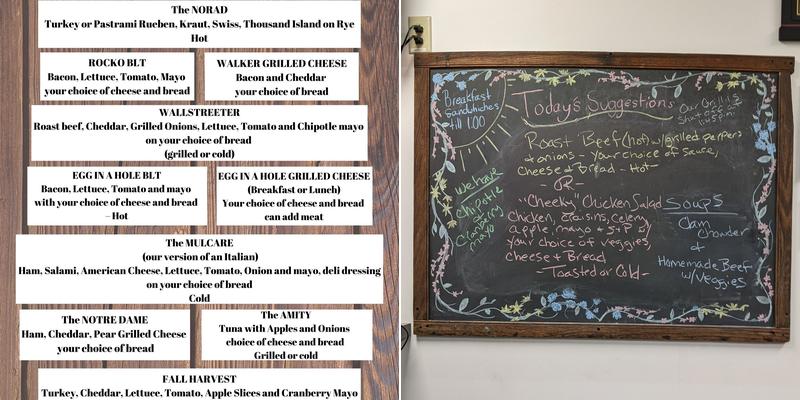 The NORAD
Turkey or Pastrami Rueben, Kraut, Swiss, Thousand Island on Rye
Hot
ROCKO BLT
Bacon, Lettuce, Tomato, Mayo
your choice of cheese and bread
WALKER GRILLED CHEESE
Bacon and Cheddar
your choice of bread
WALLSTREETER
Roast beef, Cheddar, Grilled Onions, Lettuce, Tomato and Chipotle mayo
on your choice of bread
(grilled or cold)
EGG IN A HOLE BLT
Bacon, Lettuce, Tomato and mayo
with your choice of cheese and bread
– Hot
EGG IN A HOLE GRILLED CHEESE
(Breakfast or Lunch)
Your choice of cheese and bread
can add meat
The MULCARE
(our version of an Italian)
Ham, Salami, American Cheese, Lettuce, Tomato, Onion and mayo, deli dressing
on your choice of bread
Cold
The NOTRE DAME
Ham, Cheddar, Pear Grilled Cheese
your choice of bread
The AMITY
Tuna with Apples and Onions
choice of cheese and bread
Grilled or cold
FALL HARVEST
Turkey, Cheddar, Lettuce, Tomato, Apple Slices and Cranberry Mayo
Breakfast
sandwiches
till 1:00
Today's Suggestions
Our Grill is
Shut off at
Roast Beef (hot) w/grilled peppers
+ onions - your choice of sauce,
cheese + Bread - Hot-
- OR -
We have
chipotle
cranberry
mayo
"Cheeky" Chicken Salad
chicken, craisins, celery
apple, mayo + S+P w/
your choice of veggies,
cheese + Bread
- Toasted or Cold -
Soups
Clam
Chowder
+
Homemade Beef
w/Veggies